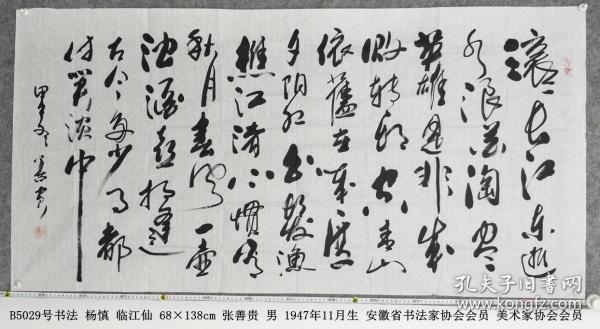 滚滚长江东逝
水浪花淘尽
英雄是非成
败转头空青山
依舊在几度
夕阳红白发渔
樵江渚上惯看
秋月春风一壶
浊酒喜相逢
古今多少事都
付笑谈中
善贵
孔夫子旧书网
B5029号书法 杨慎 临江仙 68×138cm 张善贵 男 1947年11月生 安徽省书法家协会会员 美术家协会会员